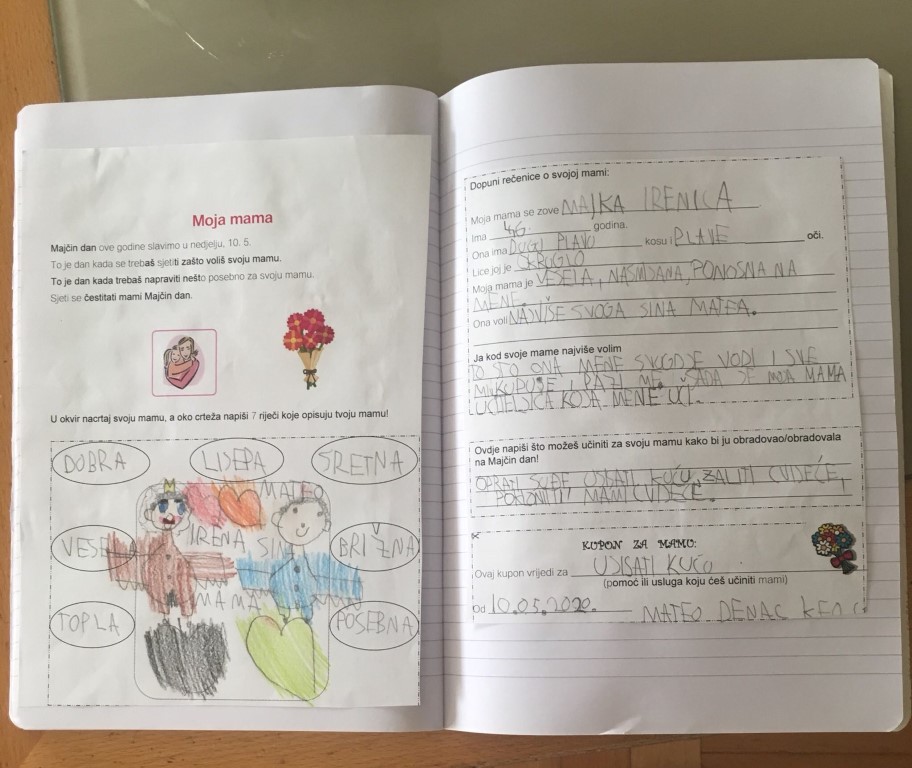 Moja mama
Majčin dan ove godine slavimo u nedjelju, 10. 5.
To je dan kada se trebaš sjetiti zašto voliš svoju mamu.
To je dan kada trebaš napraviti nešto posebno za svoju mamu.
Sjeti se čestitati mami Majčin dan.
U okvir nacrtaj svoju mamu, a oko crteža napiši 7 riječi koje opisuju tvoju mamu!
DOBRA
LIJEPA
SRETNA
MATEO
IRENA
SIN
VESELA
BRIŽNA
MAMA
TOPLA
POSEBNA
Dopuni rečenice o svojoj mami:
Moja mama se zove MAJKA IRENICA
Ima 46. godina.
Ona ima DUGU PLAVU kosu i PLAVE oči.
Lice joj je OKRUGLO
Moja mama je VESELA, NASMJANA, PONOSNA NA
MENE.
Ona voli NAJVIŠE SVOGA SINA MATEA.
Ja kod svoje mame najviše volim
TO ŠTO ONA MENE SVUGDJE VODI I SVE
MI KUPUJE I PAZI ME. SADA JE MOJA MAMA
UČITELJICA KOJA MENE UČI.
Ovdje napiši što možeš učiniti za svoju mamu kako bi ju obradovao/obradovala
na Majčin dan!
OPRATI SUĐE USISATI KUĆU, ZALITI CVIJEĆE,
POKLONITI MAMI CVIJEĆE.
KUPON ZA MAMU:
Ovaj kupon vrijedi za USISATI KUĆU
(pomoć ili usluga koju ćeš učiniti mami)
Od 10.05.2020. MATEO DENAC